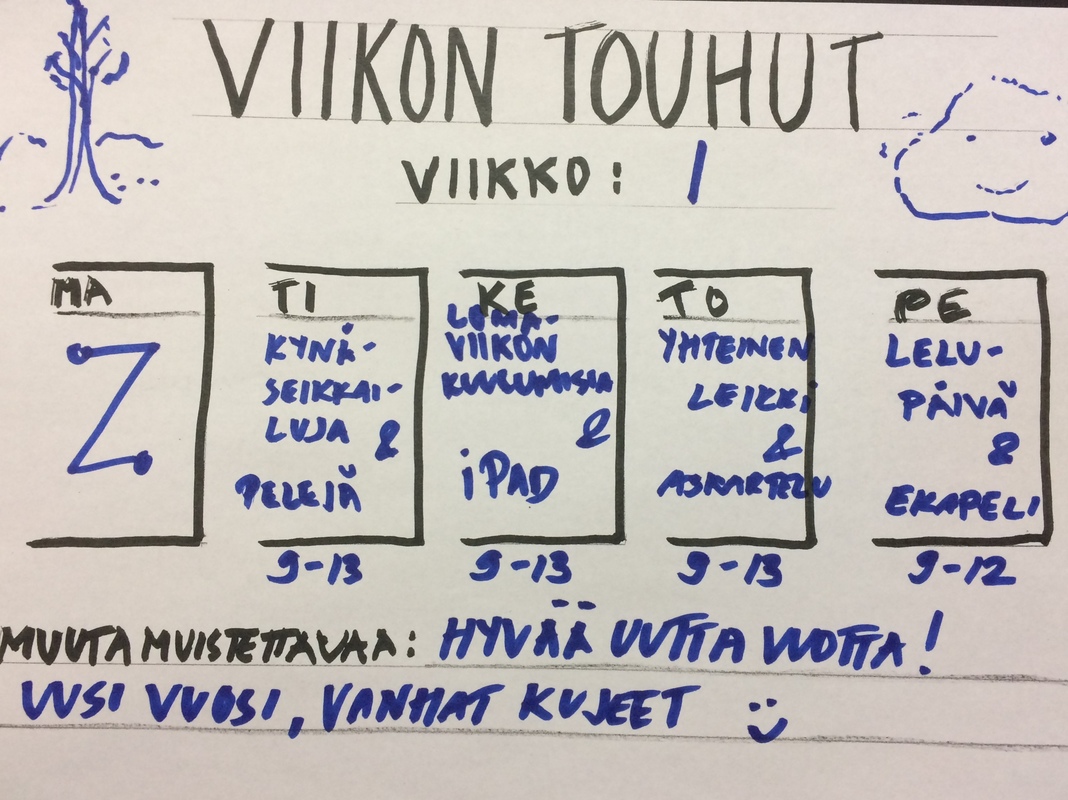 VIIKON TOUHUT
VIIKKO: 1
MA
Z
TI
KYNÄ-
SEIKKAI-
LUJA &
PELEJÄ
9-13
KE
LOMA-
VIIKON
KUULUMISIA
&
iPAD
9-13
TO
YHTEINEN
LEIKKI
&
ASKARTELU
9-13
PE
LELU-
PÄIVÄ
&
EKAPELI
9-12
MUUTA MUISTETTAVAA: HYVÄÄ UUTTA VUOTTA!
UUSI VUOSI, VANHAT KUJEET